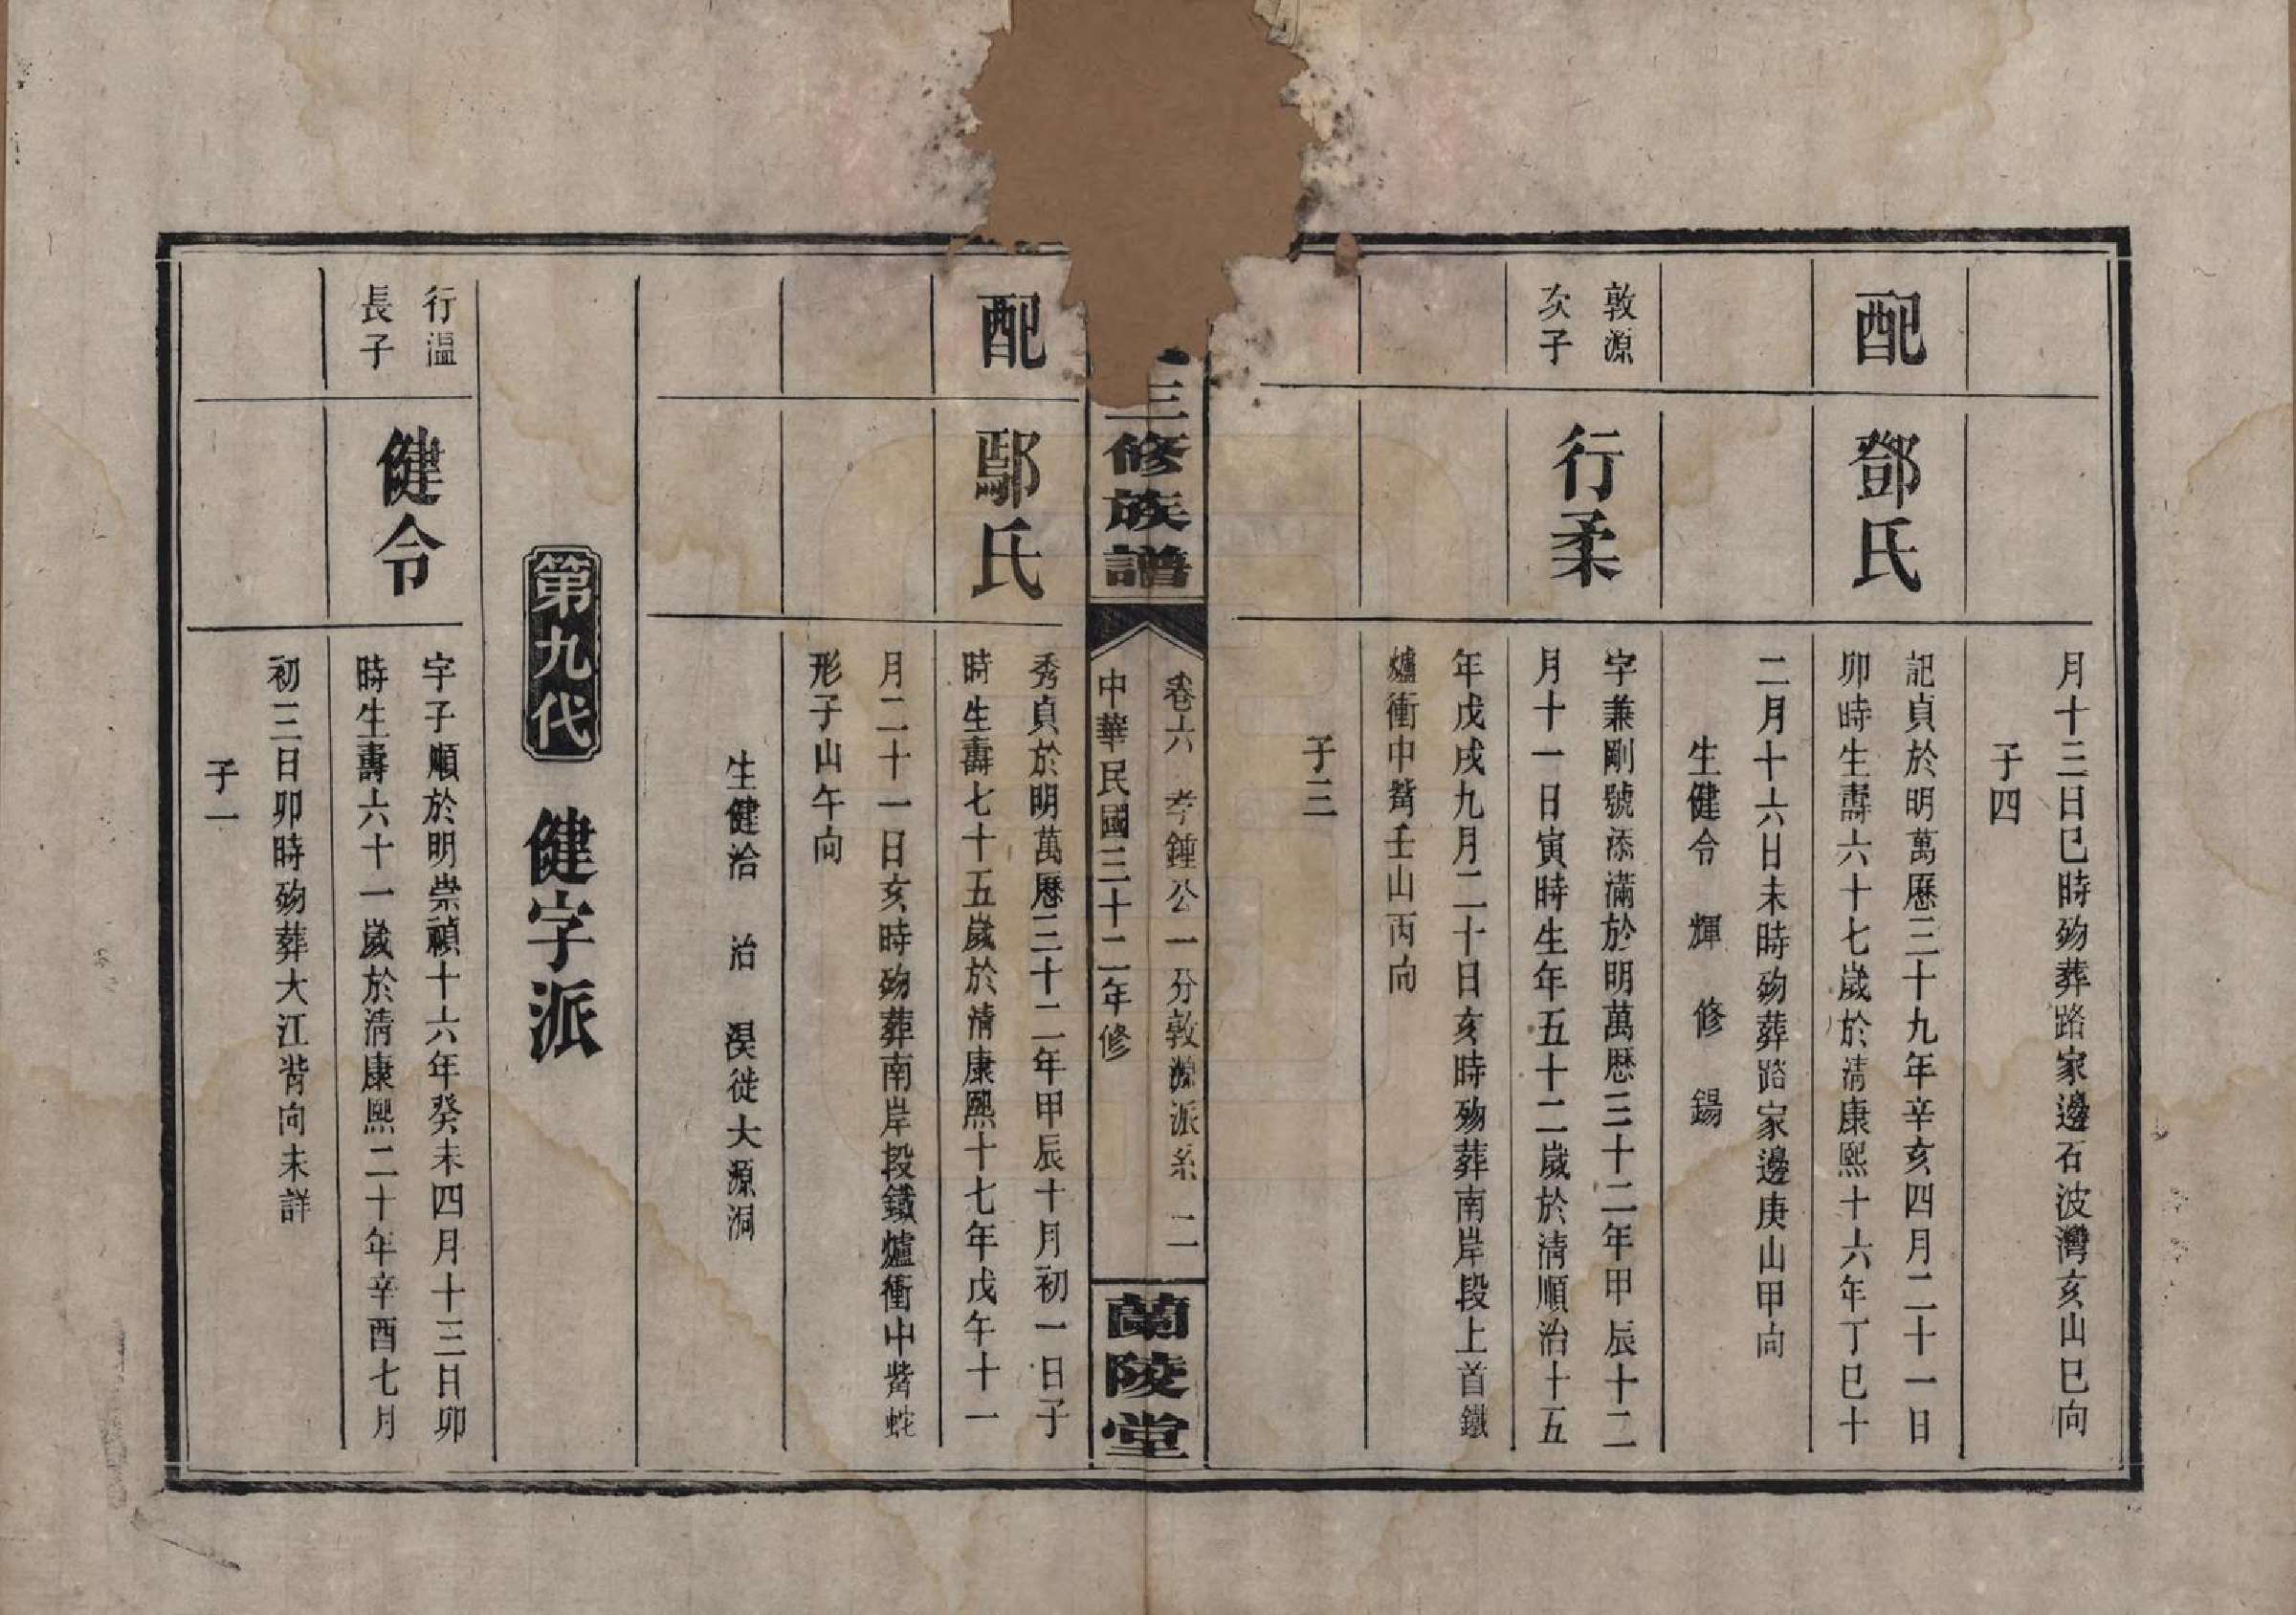 月十三日巳時歿葬路家邊石波灣亥山巳向
子四
配
鄧氏
記貞於明萬歷三十九年辛亥四月二十一日
卯時生壽六十七歲於清康熙十六年丁巳十
二月十六日未時歿葬路家邊庚山甲向
生健令 輝 修 錫
敦源
次子
行柔
字兼剛號添滿於明萬歷三十二年甲辰十二
月十一日寅時生年五十二歲於清順治十五
年戊戌九月二十日亥時歿葬南岸段上首鐵
爐衝中嘴壬山丙向
子三
三修族譜
卷六 孝鍾公一分敦源派系 二
中華民國三十二年修
蘭陵堂
配
鄢氏
秀貞於明萬歷三十二年甲辰十月初一日子
時生壽七十五歲於清康熙十七年戊午十一
月二十一日亥時歿葬南岸段鐵爐衝中嘴蛇
形子山午向
生健洽 治 淏徙大源洞
第九代
健字派
行溫
長子
健令
字子順於明崇禎十六年癸未四月十三日卯
時生壽六十一歲於清康熙二十年辛酉七月
初三日卯時歿葬大江背向未詳
子一